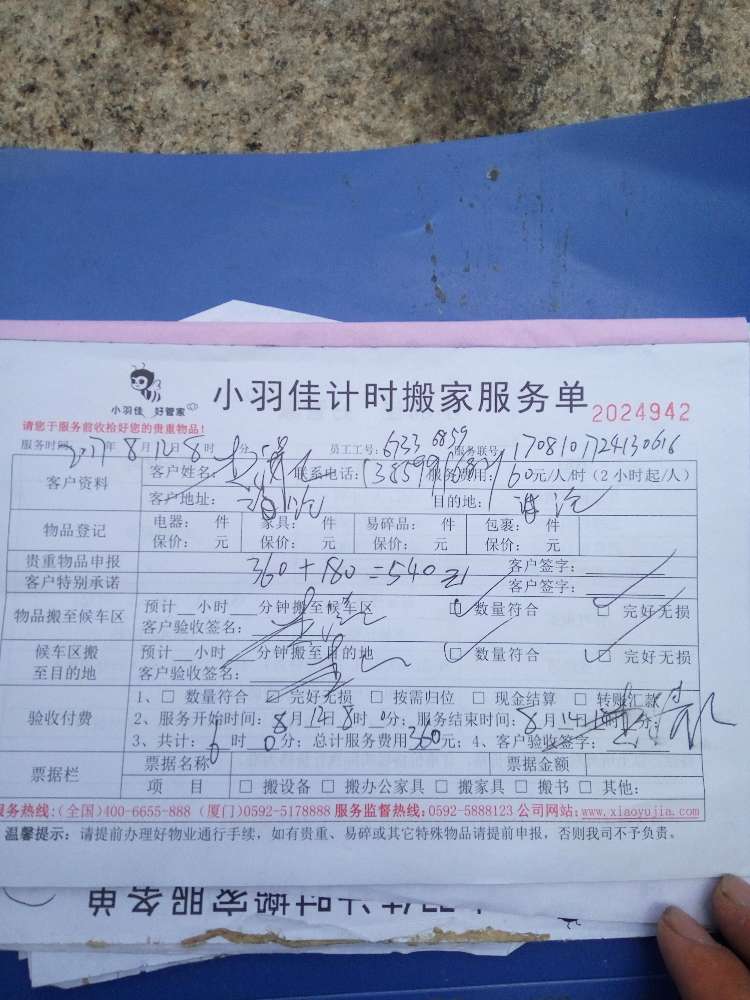 小羽佳 好管家
小羽佳计时搬家服务单 2024942
请您于服务前收拾好您的贵重物品!
服务时间: 2017年8月12日8时 分 员工工号: 6733 6859 服务联号: 1708101724130616
客户资料 客户姓名: 联系电话: 服务费用: 60元/人/时(2小时起/人)
客户地址: 海沧 目的地: 海沧
物品登记 电器: 件 家具: 件 易碎品: 件 包裹: 件
保价: 元 保价: 元 保价: 元 保价: 元
贵重物品申报 客户签字:
360+180=540元
客户特别承诺 客户签字:
物品搬至候车区 预计 小时 分钟搬至候车区 □ 数量符合 □ 完好无损
客户验收签名:
候车区搬至目的地 预计 小时 分钟搬至目的地 □ 数量符合 □ 完好无损
客户验收签名:
验收付费 1、□ 数量符合 □ 完好无损 □ 按需归位 □ 现金结算 □ 转账汇款
2、服务开始时间: 8月12日8时0分; 服务结束时间: 8月14日 分;
3、共计: 6时0分; 总计服务费用360元; 4、客户验收签字:
票据栏 票据名称 票据金额
项 目 □ 搬设备 □ 搬办公家具 □ 搬家具 □ 搬书 □ 其他:
服务热线:(全国)400-6655-888 (厦门)0592-5178888 服务监督热线:0592-5888123 公司网站:www.xiaoyujia.com
温馨提示: 请提前办理好物业通行手续, 如有贵重、易碎或其它特殊物品请提前申报, 否则我司不予负责。